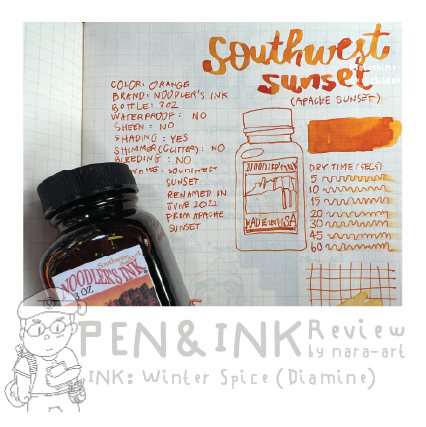 Southwest
sunset
(APACHE SUNSET)
COLOR: ORANGE
BRAND: NOODLER'S INK
BOTTLE: 3 OZ
WATERPROOF: NO
SHEEN: NO
SHADING: YES
SHIMMER(GLITTER): NO
BLEEDING: NO
SUNSET
RENAMED IN
JUNE 2022
FROM APACHE
SUNSET
NOODLER'S INK
MADE IN USA
DRY TIME (SECS)
5
10
15
20
30
45
60
Southwest
NOODLER'S INK
3 OZ
PEN & INK Review
by nara-art
INK: Winter Spice (Diamine)